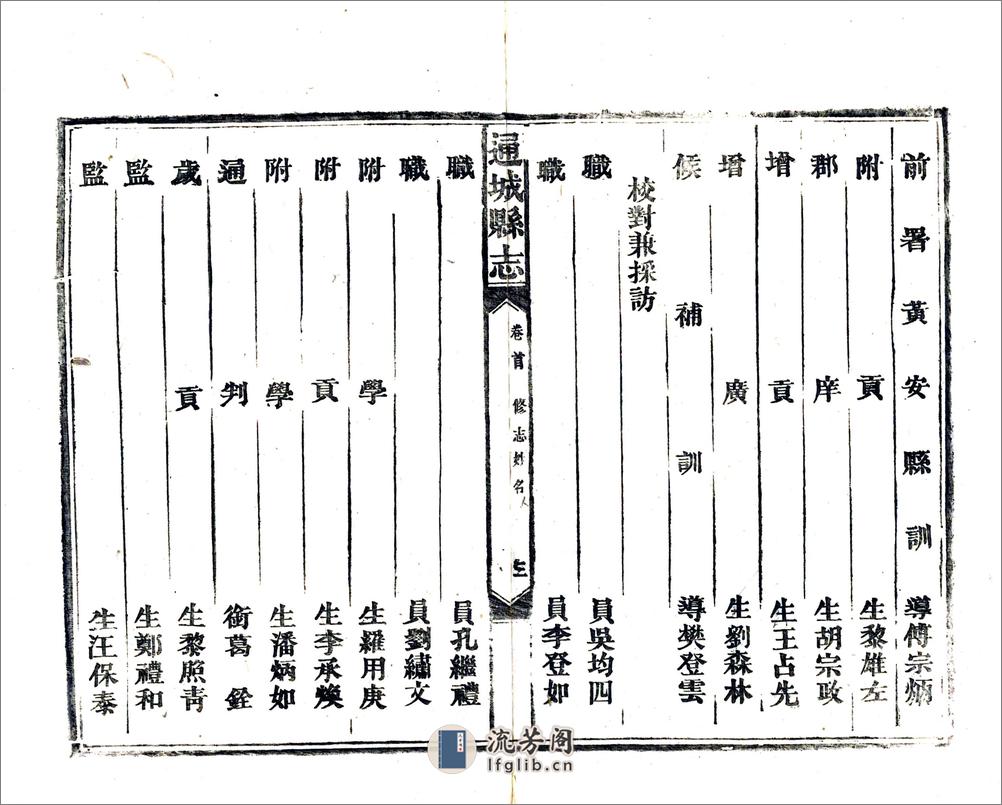 前署黃安縣訓導傅宗炳
附貢生黎雄左
郡庠生胡宗政
增貢生王占先
增廣生劉森林
候補訓導樊登雲
校對兼採訪
職員吳均四
職員李登如
通城縣志
卷首 修志姓名
職員孔繼禮
職員劉繡文
附學生羅用庚
附貢生李承煥
附學生潘炳如
通判銜葛銓
歲貢生黎照青
監生鄭禮和
監生汪保泰
流芳阁
lfglib.cn